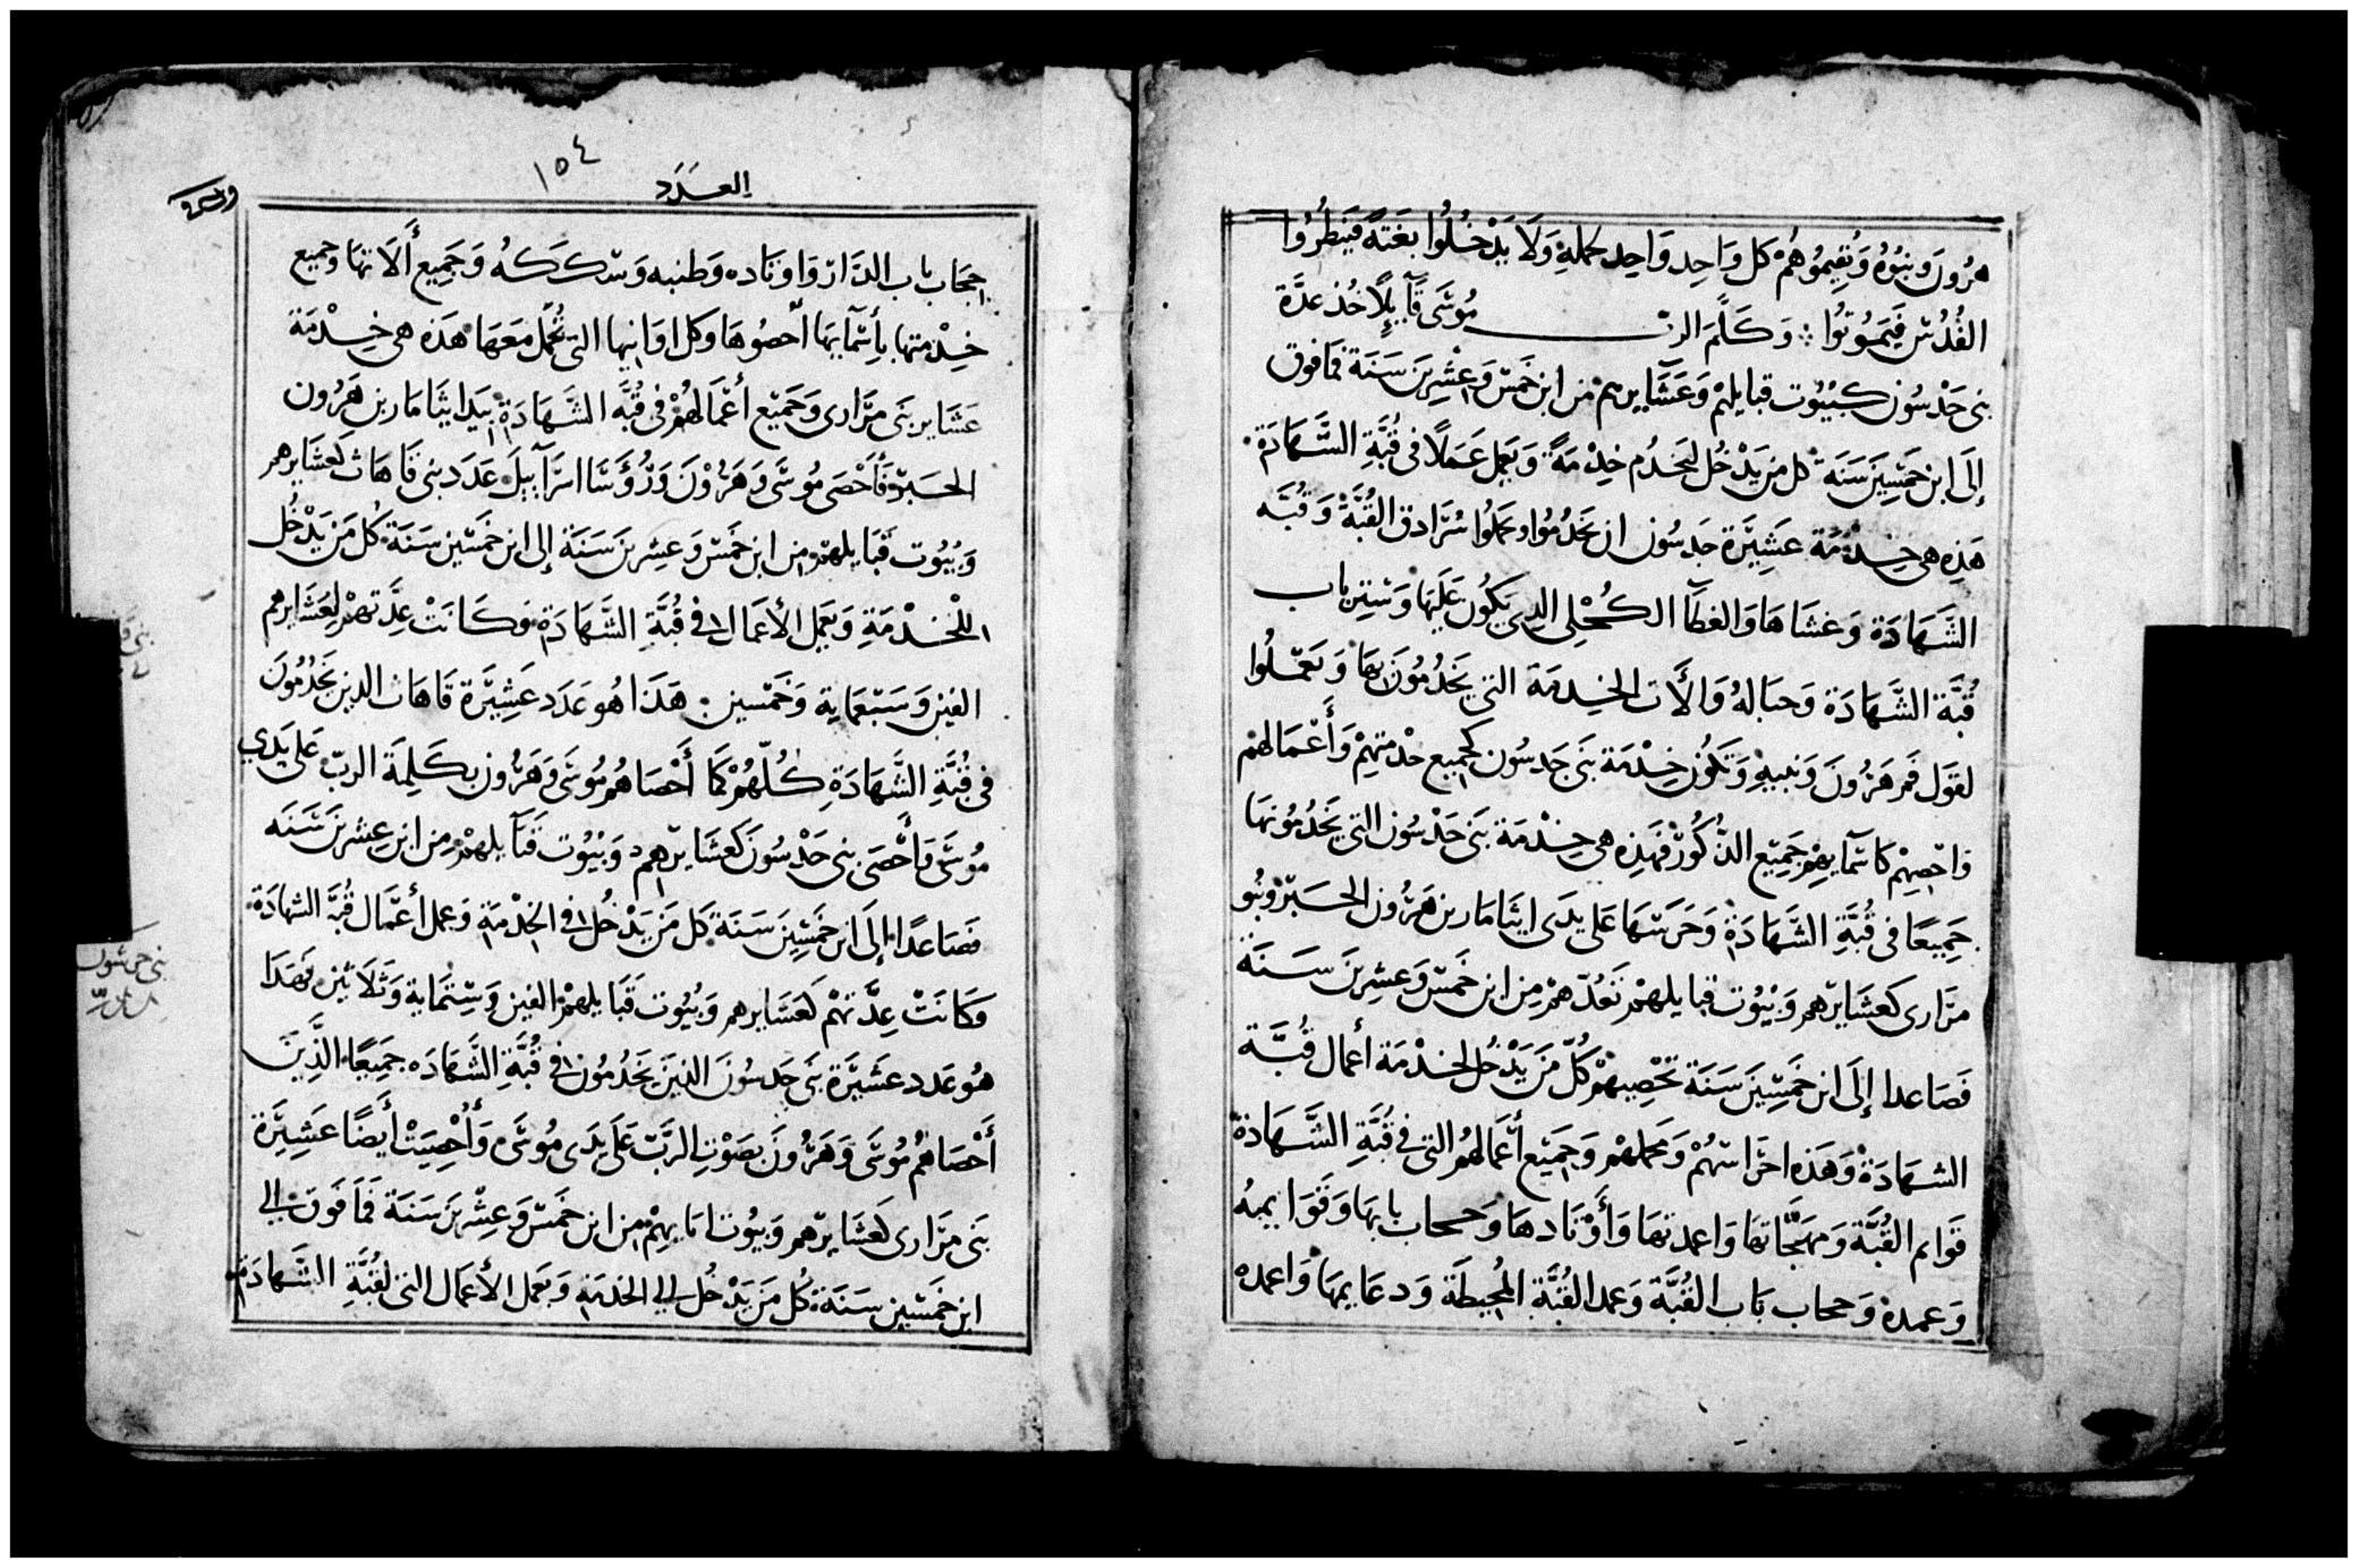 هرُونَ وبنُوهُ وَتُقِيمُوهُمْ كل وَاحِد وَاحِد لحملهِ وَلَا يَدْخُلُوا بغتةً فينظُرُوا
القُدُسْ فيَمُوتُوا ⁘ وَكَلَّمَ الربّ مُوسَى قَآيِلًا خُذ عدَّة
بنى جَدْسُون كبُيُوت قبايلهُمْ وَعَشَآيرهم من ابن خمسْ وَعِشْرِينَ سَنَة فمَا فوق
إِلَى ابن خمَسِينَ سَنَة كل من يَدْخُل ليَخدُم خِدْمَةً وَيَعمِل عَمَلًا فى قُبَّةِ الشَّهَادَةْ
هَذِه هى خِدْمَة عَشِيرَة جَدسُون ان يَخدُمُوا ويحملُوا سُرَادق القُبَّةْ وَقُبَّه
الشَّهَادَة وَغشَاهَا وَالغطآ الكُحْلِى الدِى يَكُون عَلَيهَا وَسَتِر باب
قُبَّة الشَّهَادَة وَحبَالهُ وَالأَت الخِدمَة التى يَخدُمُونَ بهَا وَيَعْمَلُوا
لقَول فم هَرُونَ وَبنيهِ وَتَكُون خِدْمَة بَنى جَدسُون كجميع خدْمتهِمْ وَأَعْمَالهمْ
وَاحْصِهِمْ كاسْمآيهِمْ جَمِيع الذُّكُورْ فَهَذِه هى خِدْمَة بَنى جَدْسُون التى يَخدُمُونهَا
جَمِيعًا فى قُبَّةِ الشَّهَادَةْ وَحَرسَهَا عَلى يدَى ايثَامَار بن هَرُون الحَبرْ وبنُو
مرَارى كعشَايرهم وَبيُوت قبايلهمْ تَعُدّهمْ مِن ابن خَمسْ وَعِشرِينَ سَنَةً
فَصَاعدا إِلَى ابن خمَسِينَ سَنَة تحْصِيهمْ كُلّ مَن يَدْخُل لخدْمَة أعمَال قُبَّة
الشهَادَةْ وَهَذه احرَاسَهُمْ وَمحملهمْ وَجَمِيع أعمَالهُم التى فى قُبَّةِ الشَّهَادَةْ
قوَايم القُبَّة وَمهَجَّاتهَا وَاعمدتهَا وَأَوْتَادهَا وَحجاب بابهَا وَقوَايمهُ
وَعمدهْ وَحجاب بَاب القُبَّة وَعمد القُبَّة المُحيطَة وَدعَايمهَا وَاعمده
العَدَد
١٥٤
حجَاب بَاب الدَّار وَاوتَاده وَطنبه وَسككهُ وَجَمِيع أَلَاتها وجميع
خِدْمتها بأسْمآيهَا أحصُوهَا وكل اوَانيها التى تُحمَل مَعَهَا هَذه هى خِدْمَة
عَشَاير بَنى مرَارى وَجَميع أَعْمَالهُمْ فى قُبَّه الشَّهَادَة بيَد ايثَامَار بن هَرُون
الحَبرْ فأَحْصَى مُوسَى وَهَرُوْنَ وَرُؤَسَا اسرَآييلَ عَدَد بنى قَاهَاث كعَشَايرهم
وَبُيُوت قبَايلهمْ من ابن خمسْ وَعِشرِينَ سَنَة إِلى ابن خمَسِين سَنَة كُل مَن يَدْخُل
للخِدْمَةِ وَيَعمِل الأَعمَال فى قُبَّةِ الشَّهَادَةْ وَكَانَتْ عِدَّتهمْ لعَشَايرهم
الفين وَسَبْعمَاية وَخَمْسين هَذَا هُو عَدَد عَشِيرَة قَاهَاث الدين يَخدُمُونَ
فى قُبَّةِ الشَّهَادَةِ كُلّهُمْ كمَا أَحْصَاهُم مُوسَى وَهَرُون بكَلِمَة الربّ عَلى يَدَي
مُوسَى وَأَحْصَى بنى جَدْسُون كعَشَايرهم وَبيُوت قبَآيلهمْ مِن ابن عِشرِينَ سَنَه
فصَاعدًا إِلَى ابن خَمَسِين سَنَة كُل مَن يَدْخُل فى الخِدْمَةِ وَعمل أعمَال قُبَّة الشهادَةْ
وَكَانَتْ عِدَّتهُمْ كعَشَايرهم وَبُيُوت قبَايلهمْ الفين وَسِتمَاية وَثَلَاثِين فهَذَا
هُو عَدد عَشيرَة بنَى جَدسُون الدِينَ يَخدُمُون فى قُبَّةِ الشَّهَادَه جَمِيعًا الَّذِينَ
أَحْصَاهُم مُوسَى وَهَرُونَ بصَوْتِ الرَّبّ عَلَى يدَى مُوسَى وَأُحْصِيَتْ أَيضًا عَشِيرَة
بَنى مرَارى كعَشَايرهم وَبيُوت ابَايهِمْ مِن ابن خَمسْ وَعِشْرِينَ سَنَة فَمَا فَوق الى
ابن خمَسِين سَنَة كُل مَن يَدْخُل الى الخدمَةِ وَيَعمل الأعمَال التى لقُبَّةِ الشَّهادَةْ
بنى جرشون